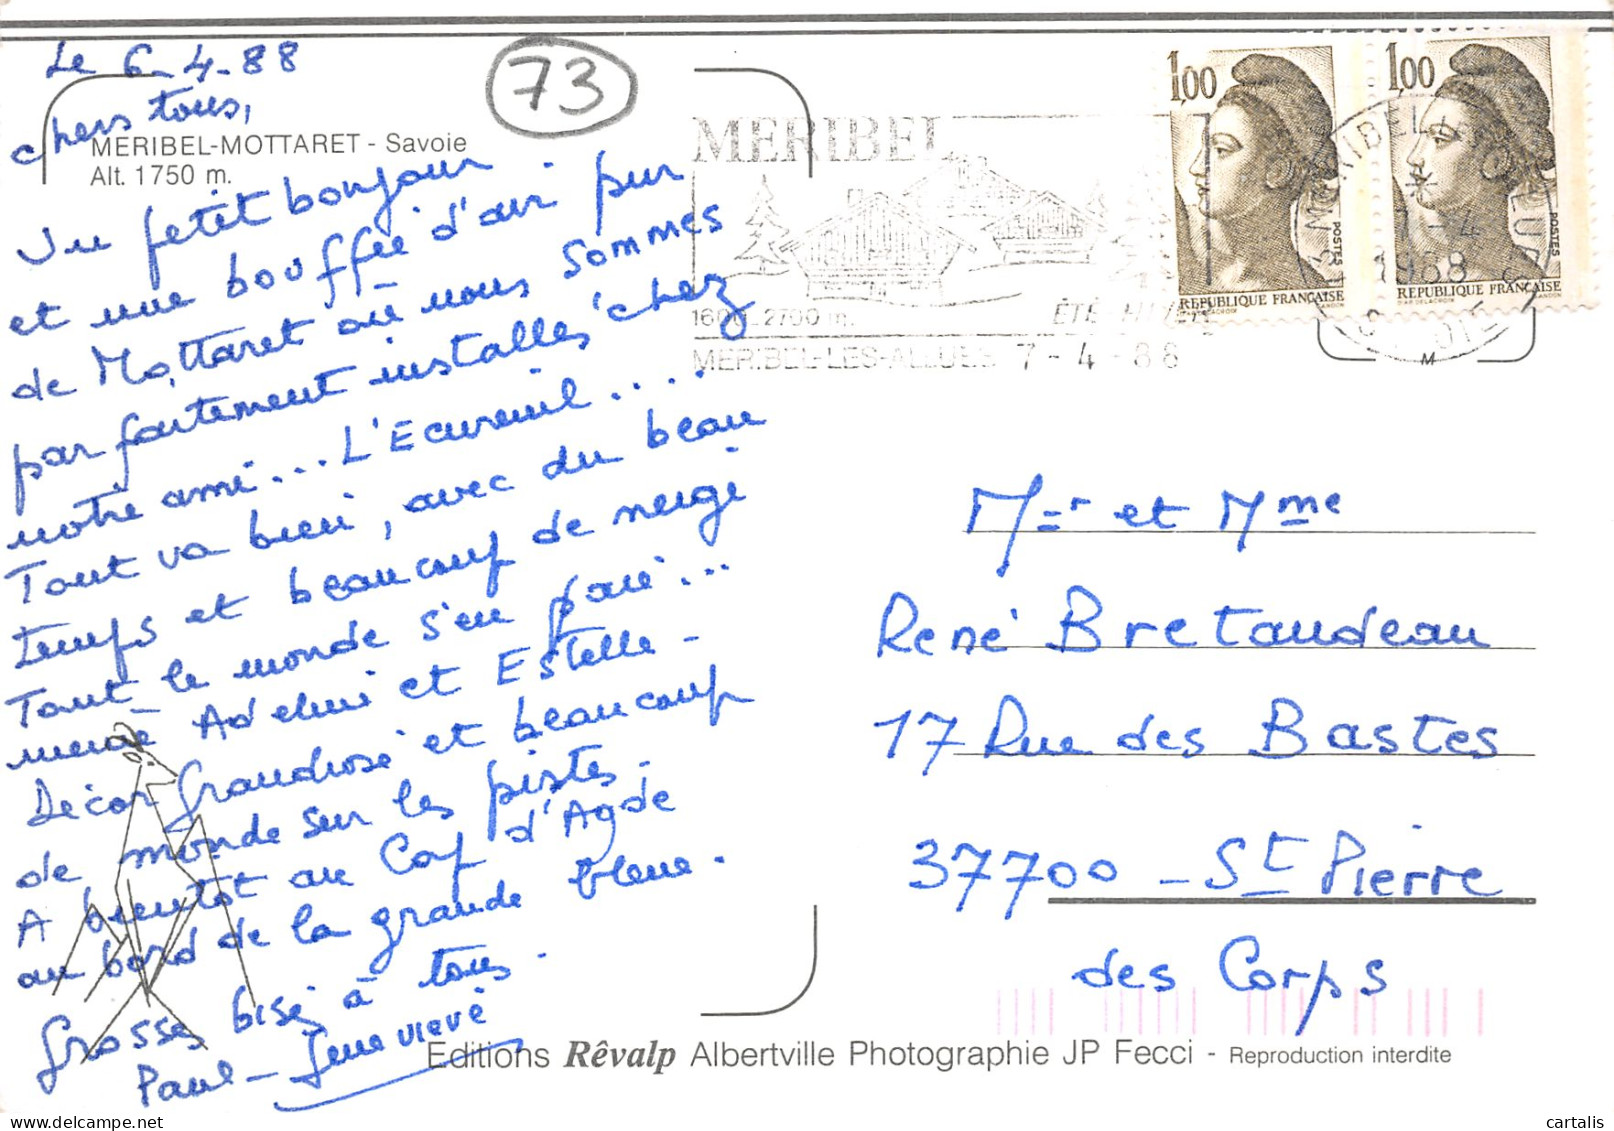 Le 6-4-88
73
chers tous,
MERIBEL-MOTTARET - Savoie
Alt. 1750 m.
Un petit bonjour
et une bouffée d'air pur
de Mottaret où nous sommes
parfaitement installés chez
notre ami... L'Ecureuil....
Tout va bien, avec du beau
temps et beaucoup de neige
Tout le monde s'en paie...
même Adelin et Estelle-
Décor grandiose et beaucoup
de monde sur les pistes.
A bientôt au Cap d'Agde
au bord de la grande bleue.
Grosses bises à tous.
Paul - Geneviève
MERIBEL
1600 2700 m.
ÉTÉ-HIVER
MERIBEL-LES-ALLUES 7-4-88
1,00
POSTES
REPUBLIQUE FRANÇAISE
D'AP. DELACROIX GANDON
1,00
POSTES
REPUBLIQUE FRANÇAISE
D'AP. DELACROIX GANDON
7-4
1988
M
Mr et Mme
René Bretaudeau
17 Rue des Bastes
37700 - St Pierre
des Corps
Editions Rêvalp Albertville Photographie JP Fecci - Reproduction interdite
cartalis
www.delcampe.net